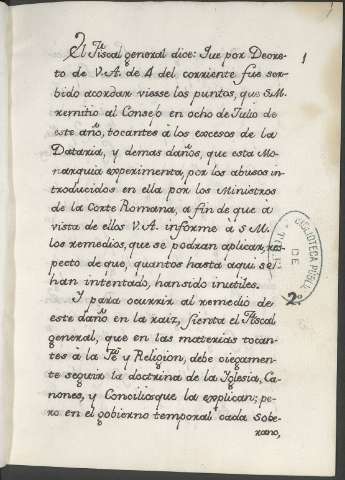 El Fiscal general dice: Que por Decre-
to de V.A. de 4 del corriente fue ser-
bido acordar viesse los puntos, que S.M.
remitió al Consejo en ocho de Julio de
este año, tocantes à los excesos de la
Dataria, y demas daños, que esta Mo-
narquia experimenta, por los abusos in-
troducidos en ella por los Ministros
de la Corte Romana, a fin de que à
vista de ellos V.A. informe à S.M.
los remedios, que se podran aplicar, res-
pecto de que, quantos hasta aqui se
han intentado, han sido inutiles.
Y para ocurrir al remedio de
este daño en la raiz, sienta el Fiscal
general, que en las materias tocan-
tes à la Fè y Religion, debe ciegamen-
te seguir la doctrina de la Iglesia, Ca-
nones, y Concilios que la explican; pe-
ro en el gobierno temporal cada sobe-
rano,
1
BIBLIOTECA
DE
2º